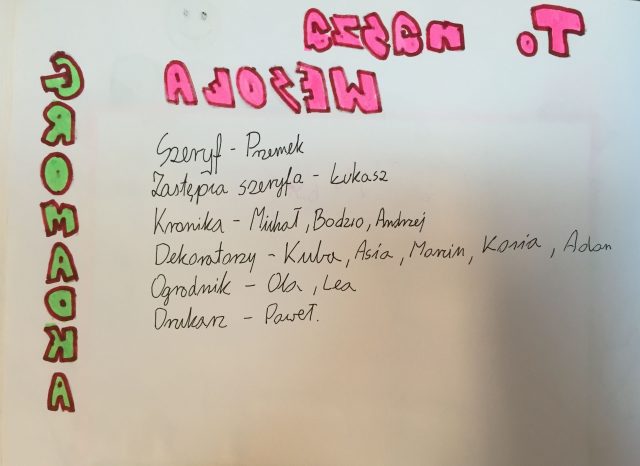 To nasza
WESOŁA
GROMADKA
Szeryf - Przemek
Zastępca szeryfa - Łukasz
Kronika - Michał, Bodzio, Andrzej
Dekoratorzy - Kuba, Asia, Marcin, Kasia, Adam
Ogrodnik - Ola, Lea
Drukarz - Paweł.